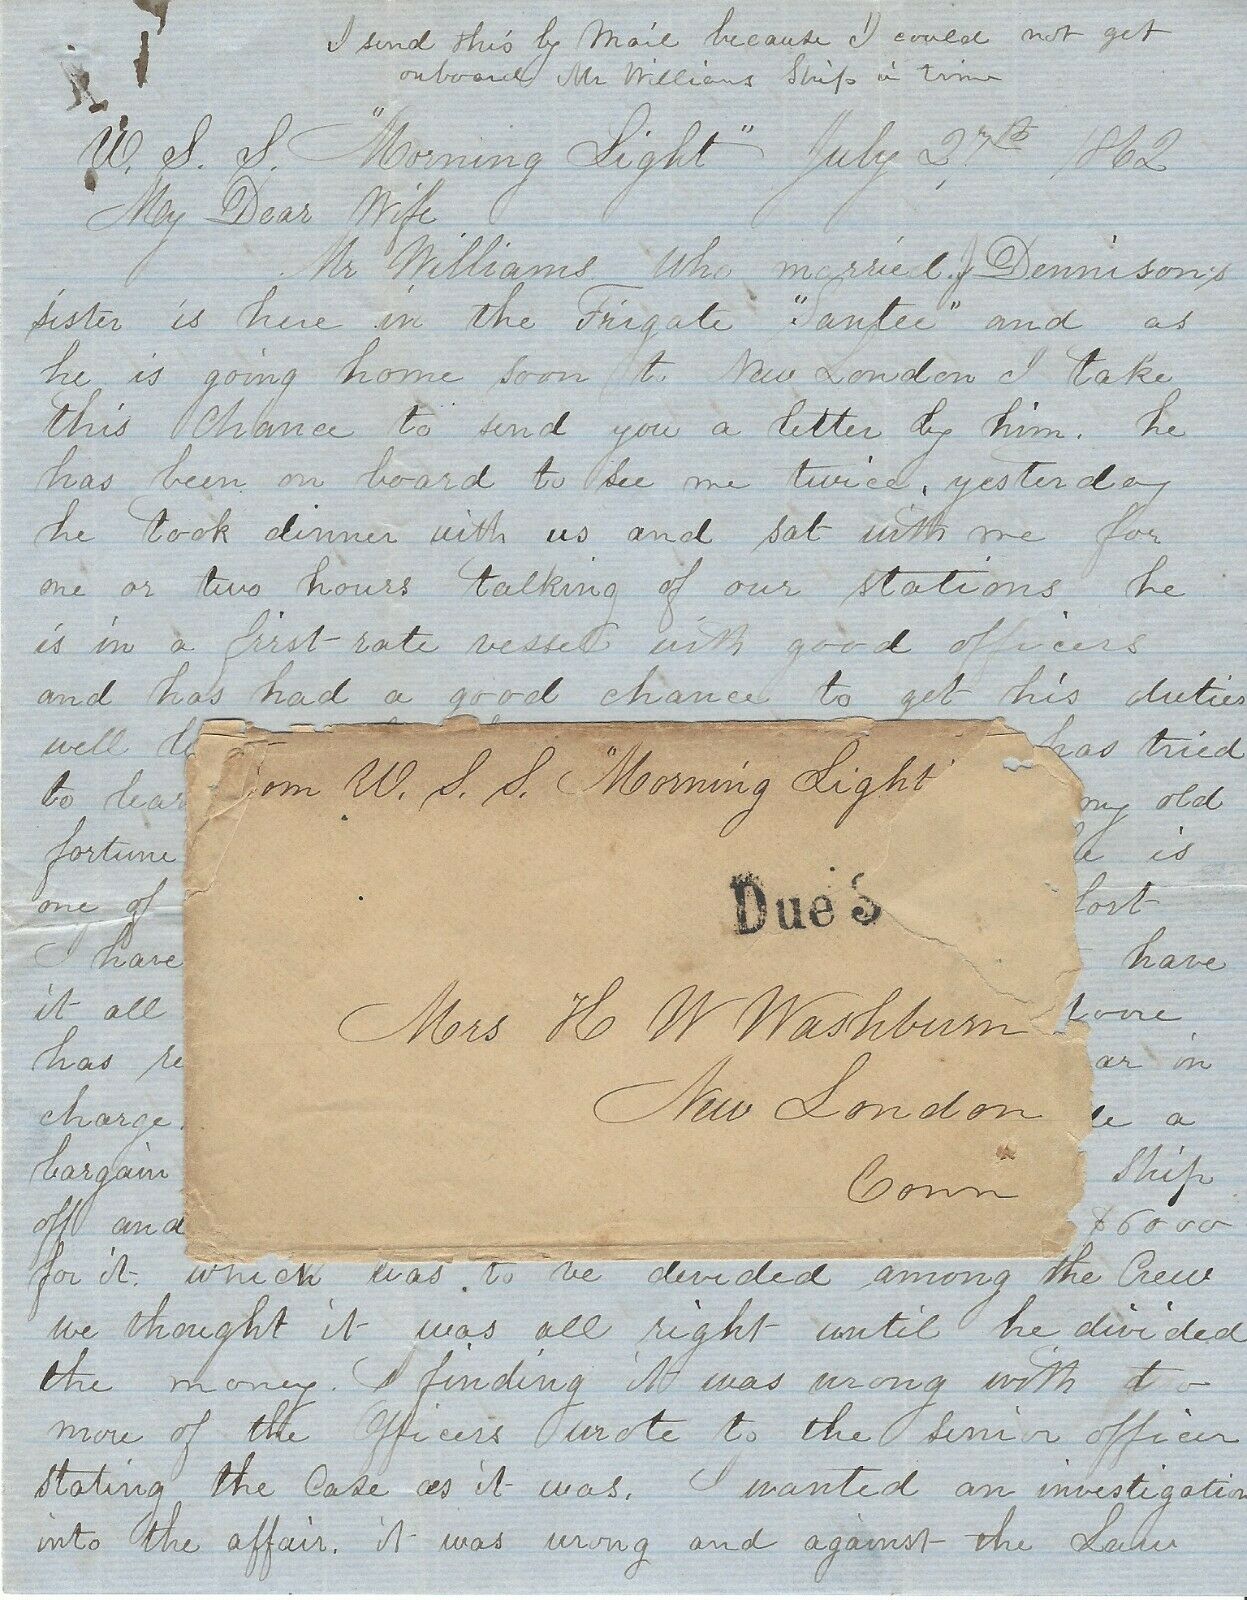 I send this by Mail because I could not get
onboard Mr Williams Ship in time
U. S. S. "Morning Light" July 27th 1862
My Dear Wife
Mr Williams who married J Dennison's
sister is here in the Frigate "Santee" and as
he is going home soon to New London I take
this chance to send you a letter by him. he
has been on board to see me twice, yesterday
he took dinner with us and sat with me for
one or two hours talking of our stations he
is in a first rate vessel with good officers
and has had a good chance to get his duties
well has tried
to my old
fortune is
one of lost
I have have
it all
has in
charge. a
bargain Ship
off and $6000
for it. which was to be devided among the Crew
we thought it was all right until he divided
the money. I finding it was wrong with two
more of the officers wrote to the senior officer
stating the Case as it was. I wanted an investigation
into the affair. it was wrong and against the Law
From U. S. S. "Morning Light"
Due 3
Mrs H W Washburn
New London
Conn